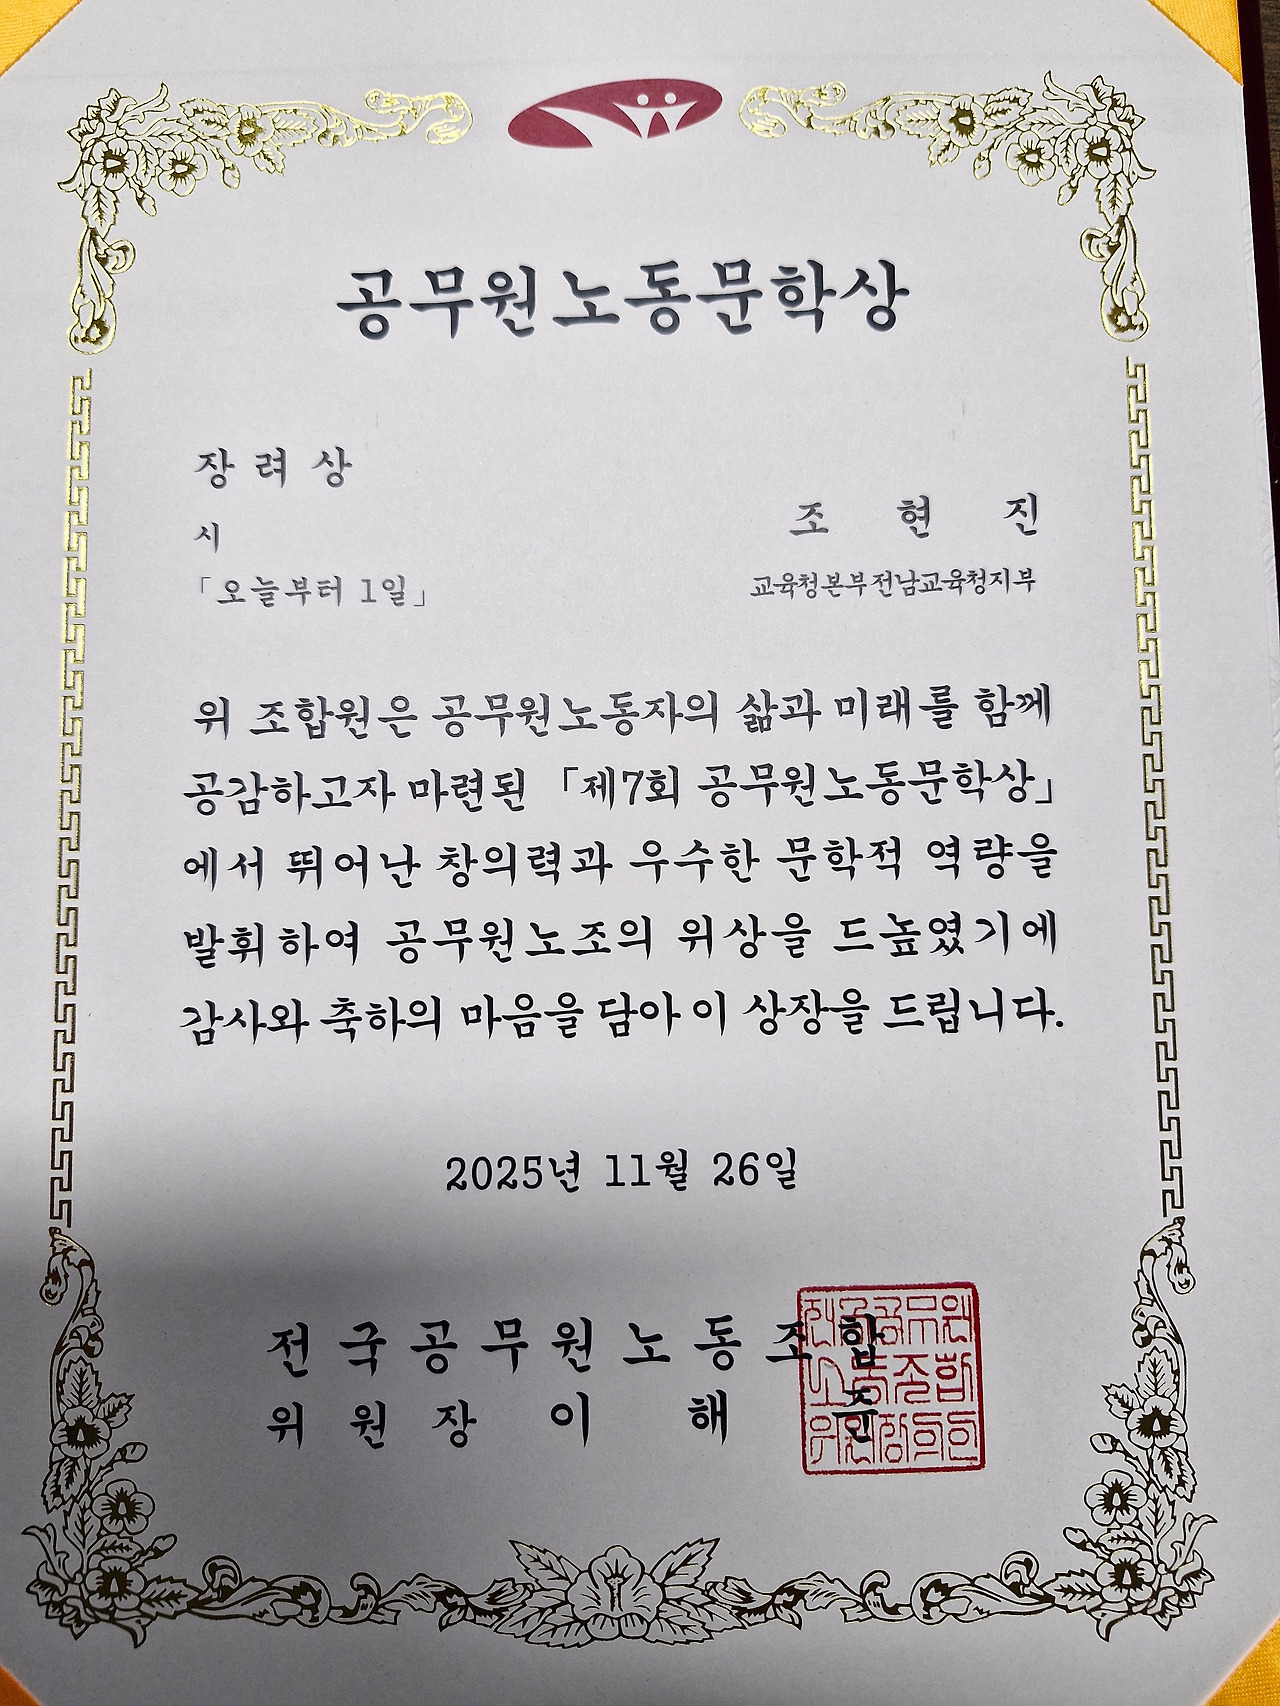 공무원노동문학상
장려상
시
「오늘부터 1일」
조 현 진
교육청본부전남교육청지부
위 조합원은 공무원노동자의 삶과 미래를 함께
공감하고자 마련된 「제7회 공무원노동문학상」
에서 뛰어난 창의력과 우수한 문학적 역량을
발휘하여 공무원노조의 위상을 드높였기에
감사와 축하의 마음을 담아 이 상장을 드립니다.
2025년 11월 26일
전국공무원노동조합
위원장 이 해 준
전국공무원
노동조합
위원장의인